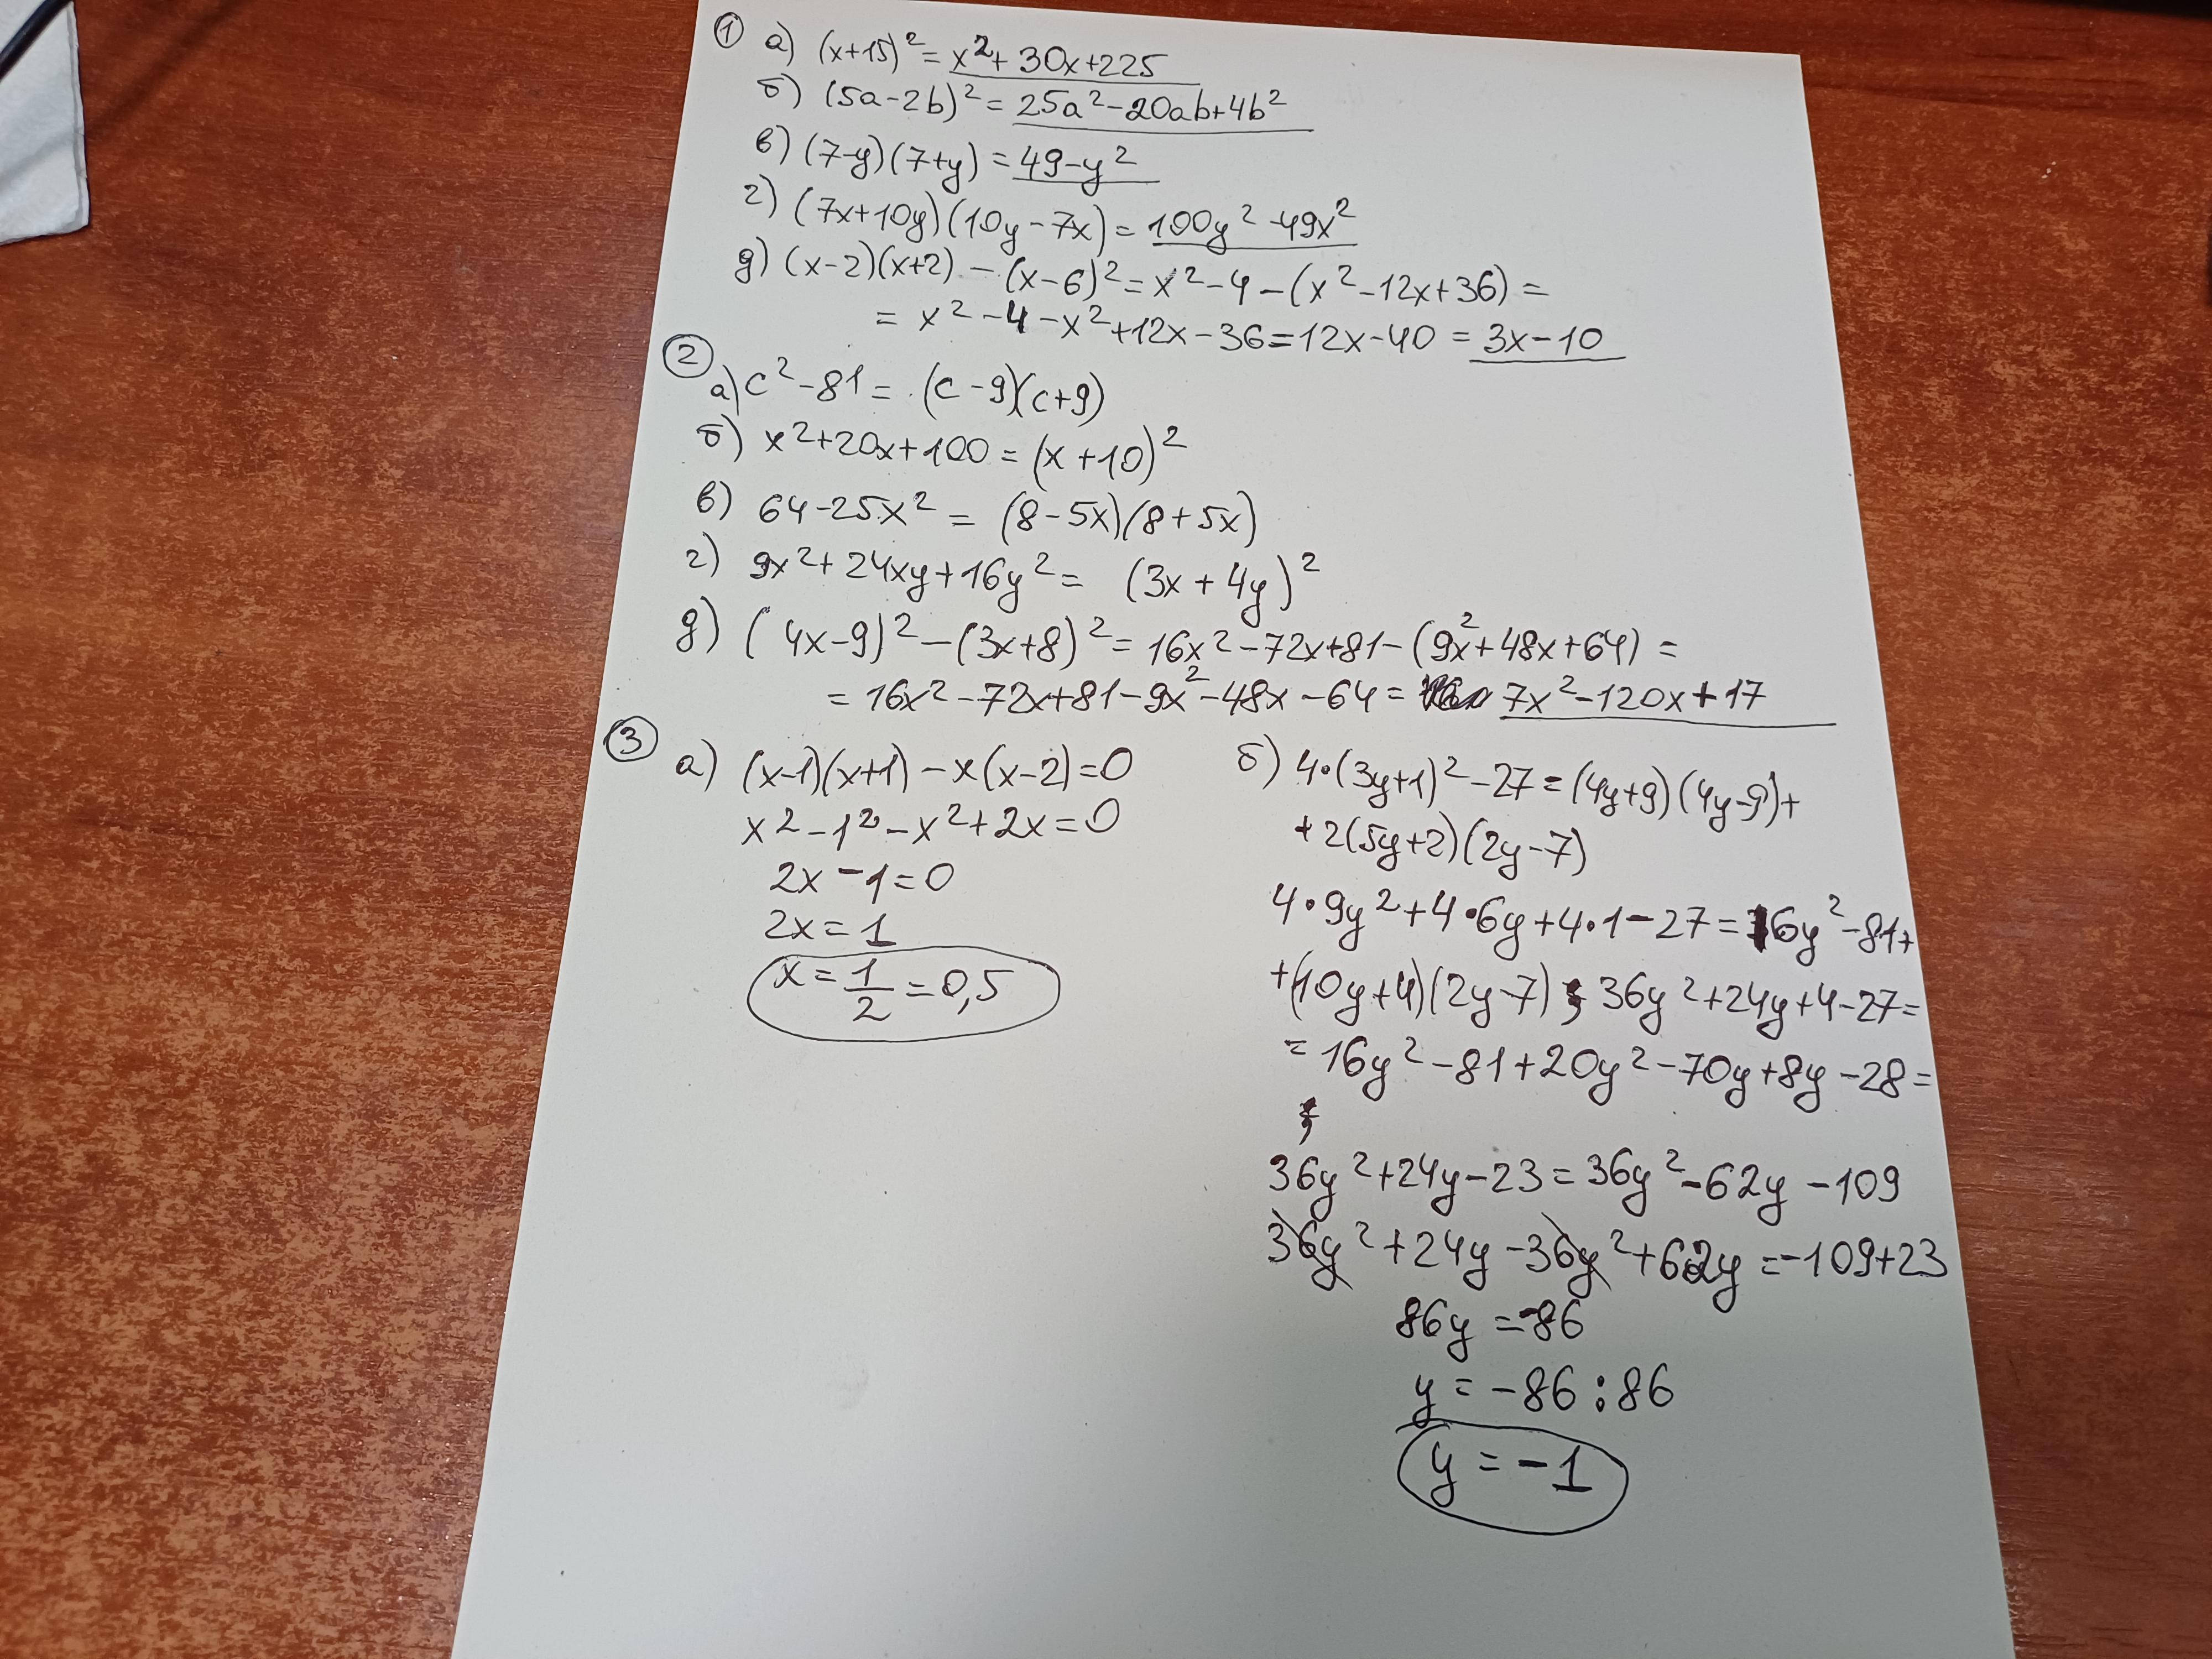 ① а) (x+15)² = x²+30x+225
б) (5a-2b)² = 25a²-20ab+4b²
в) (7-y)(7+y) = 49-y²
г) (7x+10y)(10y-7x) = 100y²-49x²
д) (x-2)(x+2) - (x-6)² = x²-4-(x²-12x+36) =
= x²-4-x²+12x-36=12x-40 = 3x-10
②
а) c²-81 = (c-9)(c+9)
б) x²+20x+100 = (x+10)²
в) 64-25x² = (8-5x)(8+5x)
г) 9x²+24xy+16y² = (3x+4y)²
д) (4x-9)²-(3x+8)² = 16x²-72x+81-(9x²+48x+64) =
= 16x²-72x+81-9x²-48x-64 = 7x²-120x+17
③
а) (x-1)(x+1)-x(x-2)=0
x²-1²-x²+2x=0
2x-1=0
2x=1
x=1/2=0,5
б) 4·(3y+1)²-27=(4y+9)(4y-9)+
+2(5y+2)(2y-7)
4·9y²+4·6y+4·1-27=16y²-81+
+(10y+4)(2y-7); 36y²+24y+4-27=
=16y²-81+20y²-70y+8y-28=
;
36y²+24y-23=36y²-62y-109
36y²+24y-36y²+62y=-109+23
86y=-86
y=-86:86
y=-1